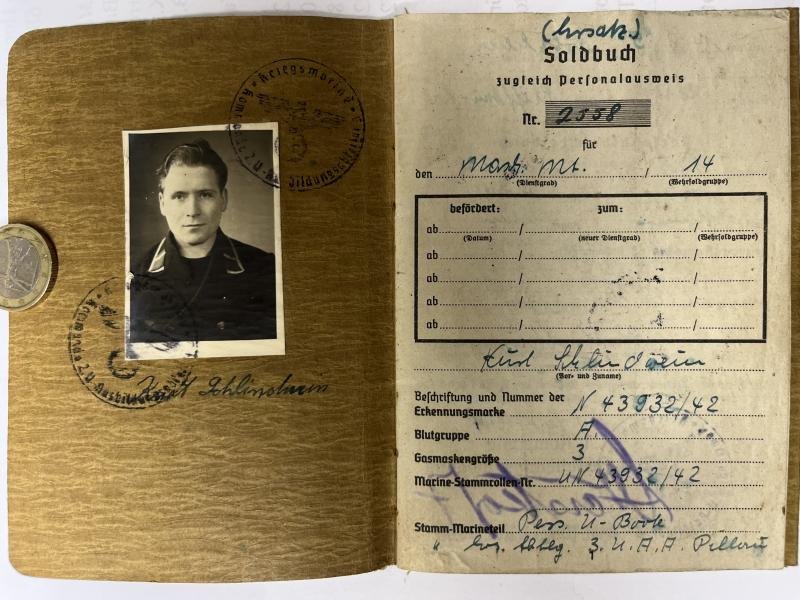 Kriegsmarine
Kurt Schlindwein
(Ersatz)
Soldbuch
zugleich Personalausweis
Nr. 2558
für
den Masch. Mt. / 14
(Dienstgrad) (Wehrsoldgruppe)
befördert: zum:
ab / /
(Datum) (neuer Dienstgrad) (Wehrsoldgruppe)
ab / /
ab / /
ab / /
ab / /
Kurt Schlindwein
(Vor- und Zuname)
Beschriftung und Nummer der
Erkennungsmarke N 43932/42
Blutgruppe A
Gasmaskengröße 3
Marine-Stammrollen-Nr. UN 43932/42
Stamm-Marineteil Pers. U-Boote
" 3. U.A.A. Pillau